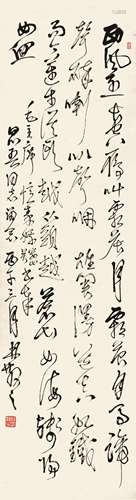 西风烈长空雁叫霜晨月霜晨月马蹄
声碎喇叭声咽雄关漫道真如铁
而今迈步从头越从头越苍山如海残阳
如血
毛主席忆秦娥娄山关
同志留念丙午三月林散之